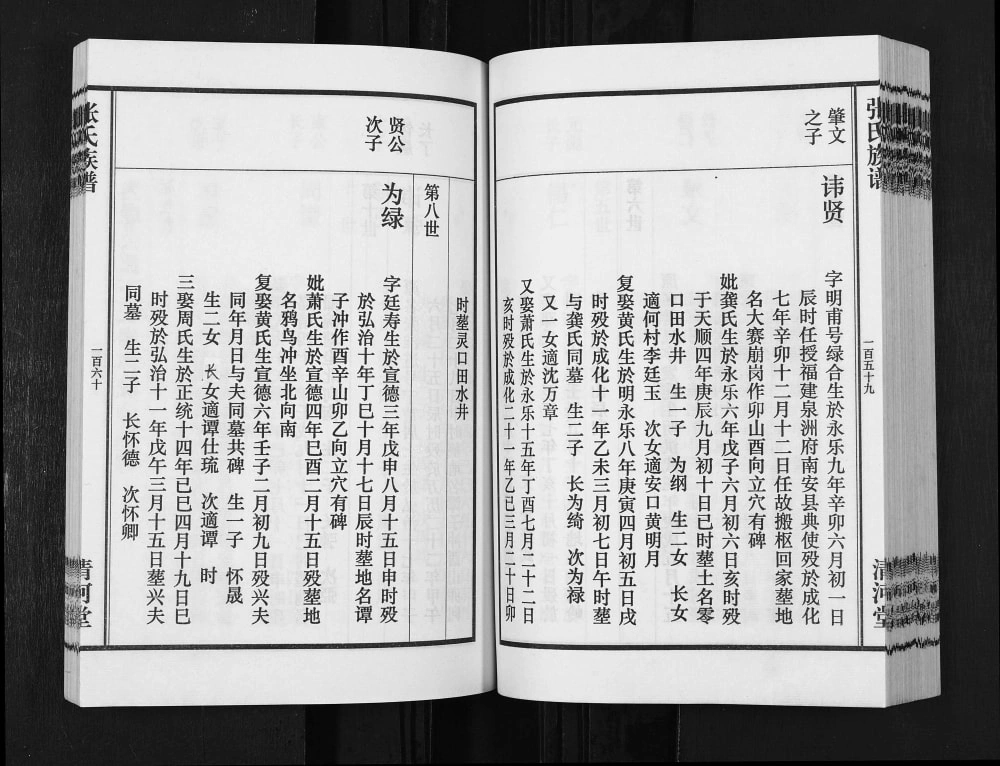 张氏族谱
清河堂
一百五十九
肇文
之子
讳贤
字明甫号绿合生於永乐九年辛卯六月初一日
辰时任授福建泉洲府南安县典使殁於成化
七年辛卯十二月十二日任故搬柩回家墓地
名大赛崩岗作卯山酉向立穴有碑
妣龚氏生於永乐六年戊子六月初六日亥时殁
于天顺四年庚辰九月初十日已时墓土名零
口田水井 生一子 为纲 生二女 长女
適何村李廷玉 次女適安口黄明月
复娶黄氏生於明永乐八年庚寅四月初五日戌
时殁於成化十一年乙未三月初七日午时墓
与龚氏同墓 生二子 长为绮 次为禄
又一女適沈万章
又娶萧氏生於永乐十五年丁酉七月二十二日
亥时殁於成化二十一年乙巳三月二十日卯
时墓灵口田水井
第八世
贤公
次子
为绿
字廷寿生於宣德三年戊申八月十五日申时殁
於弘治十年丁巳十月十七日辰时墓地名谭
子冲作酉辛山卯乙向立穴有碑
妣萧氏生於宣德四年巳酉二月十五日殁墓地
名鸦鸟冲坐北向南
复娶黄氏生宣德六年壬子二月初九日殁兴夫
同年月日与夫同墓共碑 生一子 怀晟
生二女 长女適谭仕琉 次適谭 时
三娶周氏生於正统十四年已巳四月十九日巳
时殁於弘治十一年戊午三月十五日墓兴夫
同墓 生二子 长怀德 次怀卿
张氏族谱
一百六十
清河堂